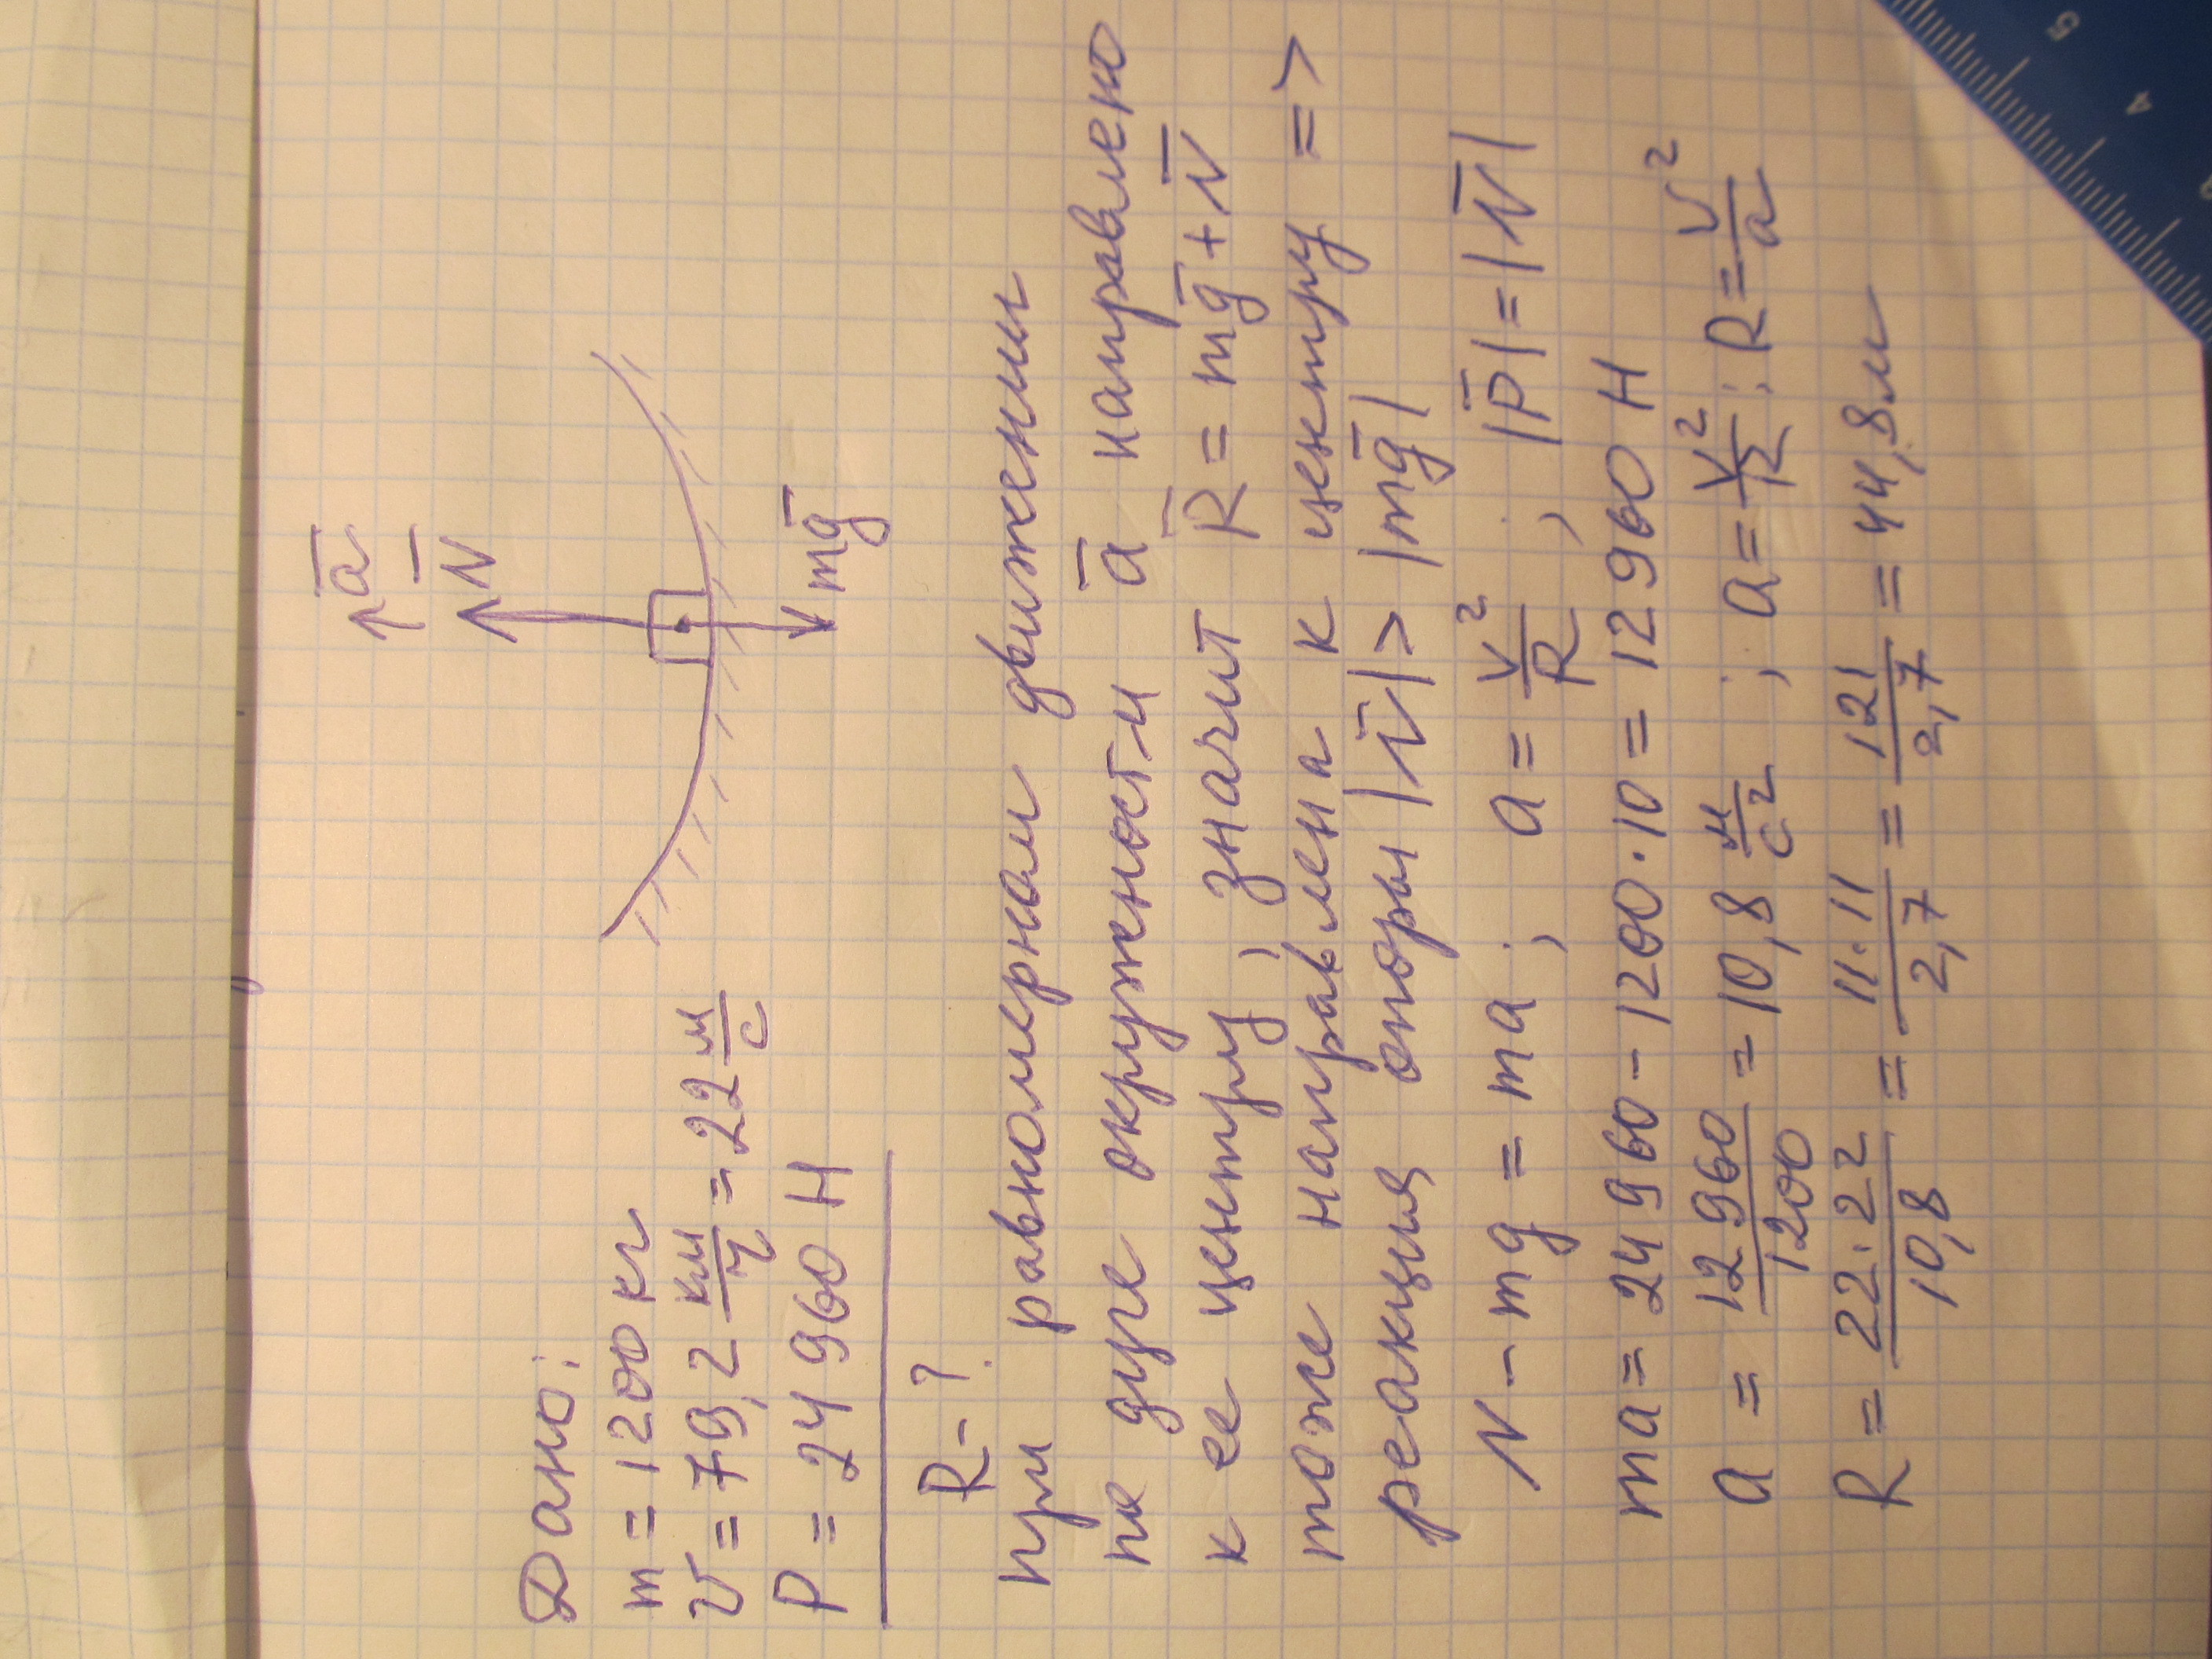 Дано:
m = 1200 кг
v = 79,2 км/ч = 22 м/с
P = 24960 Н
R - ?
a
N
mg
при равномерном движении
по дуге окружности a направлено
к ее центру, значит R = mg + N
тоже направлена к центру =>
реакция опоры |N| > |mg|
N - mg = ma ; a = v²/R ; |P| = |N|
ma = 24960 - 1200 · 10 = 12960 Н
a = 12960/1200 = 10,8 м/с² ; a = v²/R ; R = v²/a
R = 22·22/10,8 = 11·11/2,7 = 121/2,7 = 44,8 м
5
4